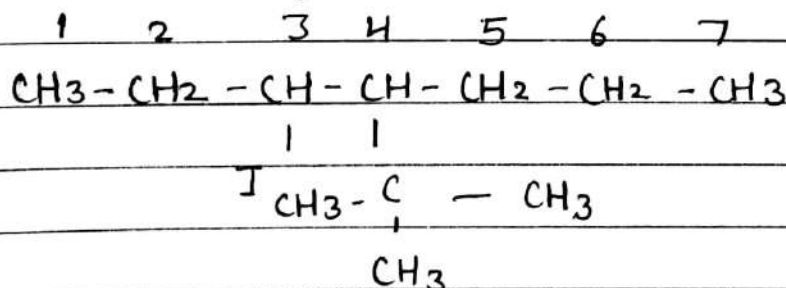 1 2 3 4 5 6 7
CH3 - CH2 - CH - CH - CH2 - CH2 - CH3
| |
I CH3 - C — CH3
|
CH3